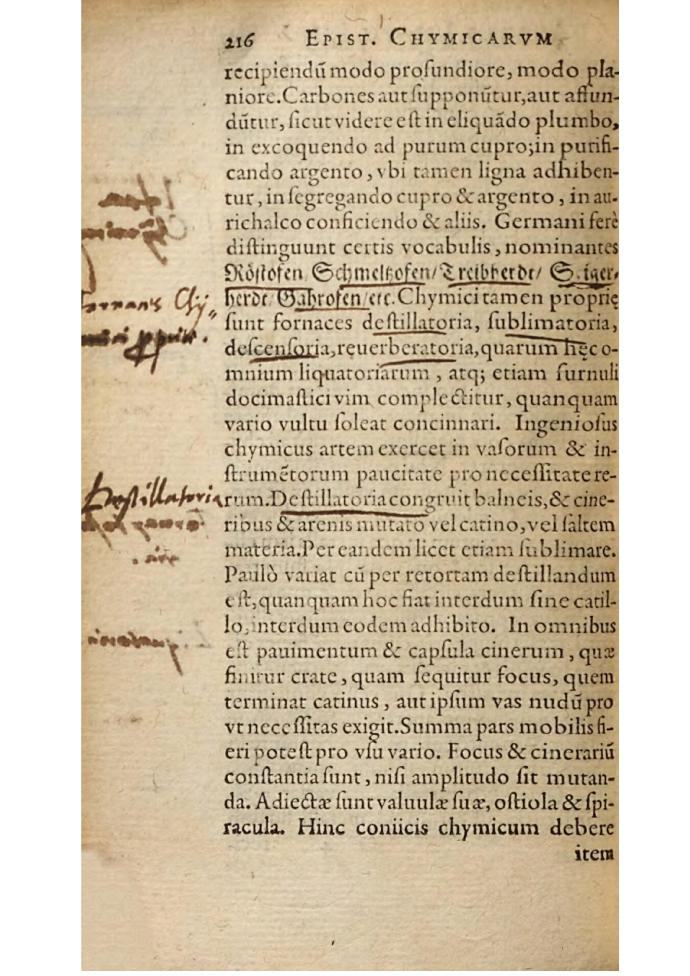 216 EPIST. CHYMICARVM
recipiendū modo profundiore, modo pla-
niore. Carbones aut ſupponūtur, aut affun-
dūtur, ſicut videre eſt in eliquādo plumbo,
in excoquendo ad purum cupro; in purifi-
cando argento, vbi tamen ligna adhiben-
tur, in ſegregando cupro & argento, in au-
richalco conficiendo & aliis. Germani ferè
diſtinguunt certis vocabulis, nominantes
Röſtofen Schmeltzofen/ Treibherdt/
herdt/ Gahrofen/ etc. Chymici tamen propriè
ſunt fornaces deſtillatoria, ſublimatoria,
deſcenſoria, reuerberatoria, quarum hęc o-
mnium liquatoriarum, atq; etiam furnuli
docimaſtici vim complectitur, quanquam
vario vultu ſoleat concinnari. Ingenioſus
chymicus artem exercet in vaſorum & in-
ſtrumētorum paucitate pro neceſſitate re-
Deſtillatoria
rum. Deſtillatoria congruit balneis, & cine-
ribus & arenis mutato vel catino, vel ſaltem
materia. Per eandem licet etiam ſublimare.
Paulò variat cū per retortam deſtillandum
eſt, quanquam hoc fiat interdum ſine catil-
lo, interdum eodem adhibito. In omnibus
eſt pauimentum & capſula cinerum, quæ
finitur crate, quam ſequitur focus, quem
terminat catinus, aut ipſum vas nudū pro
vt neceſſitas exigit. Summa pars mobilis fi-
eri poteſt pro vſu vario. Focus & cinerariū
conſtantia ſunt, niſi amplitudo ſit mutan-
da. Adiectæ ſunt valuulæ ſuæ, oſtiola & ſpi-
racula. Hinc coniicis chymicum debere
item